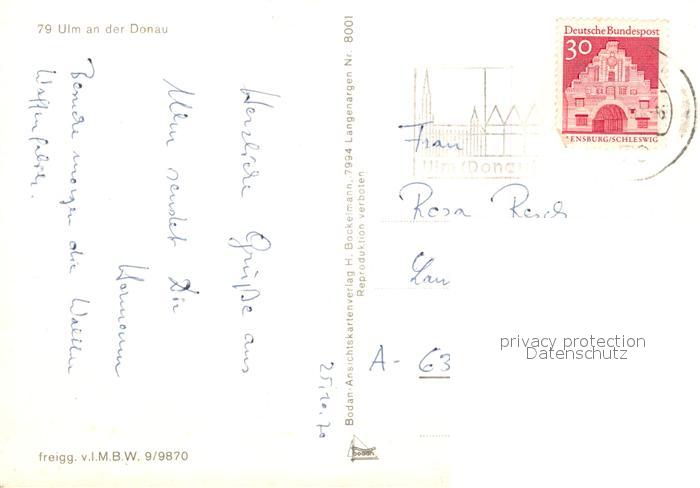 79 Ulm an der Donau
Herzliche Grüße aus
Ulm sendet Dir
Hermann
Besuche morgen die
25.10.70
freigg. v.I.M.B.W. 9/9870
Bodan-Ansichtskartenverlag H. Bockelmann, 7994 Langenargen Nr. 8001
Reproduktion verboten
bodan
Deutsche Bundespost
30
ENSBURG/SCHLESWIG
Ulm (Donau)
Frau
Rosa Resch
A - 63
privacy protection
Datenschutz